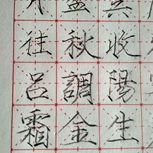 往秋收
呂調陽
霜金生